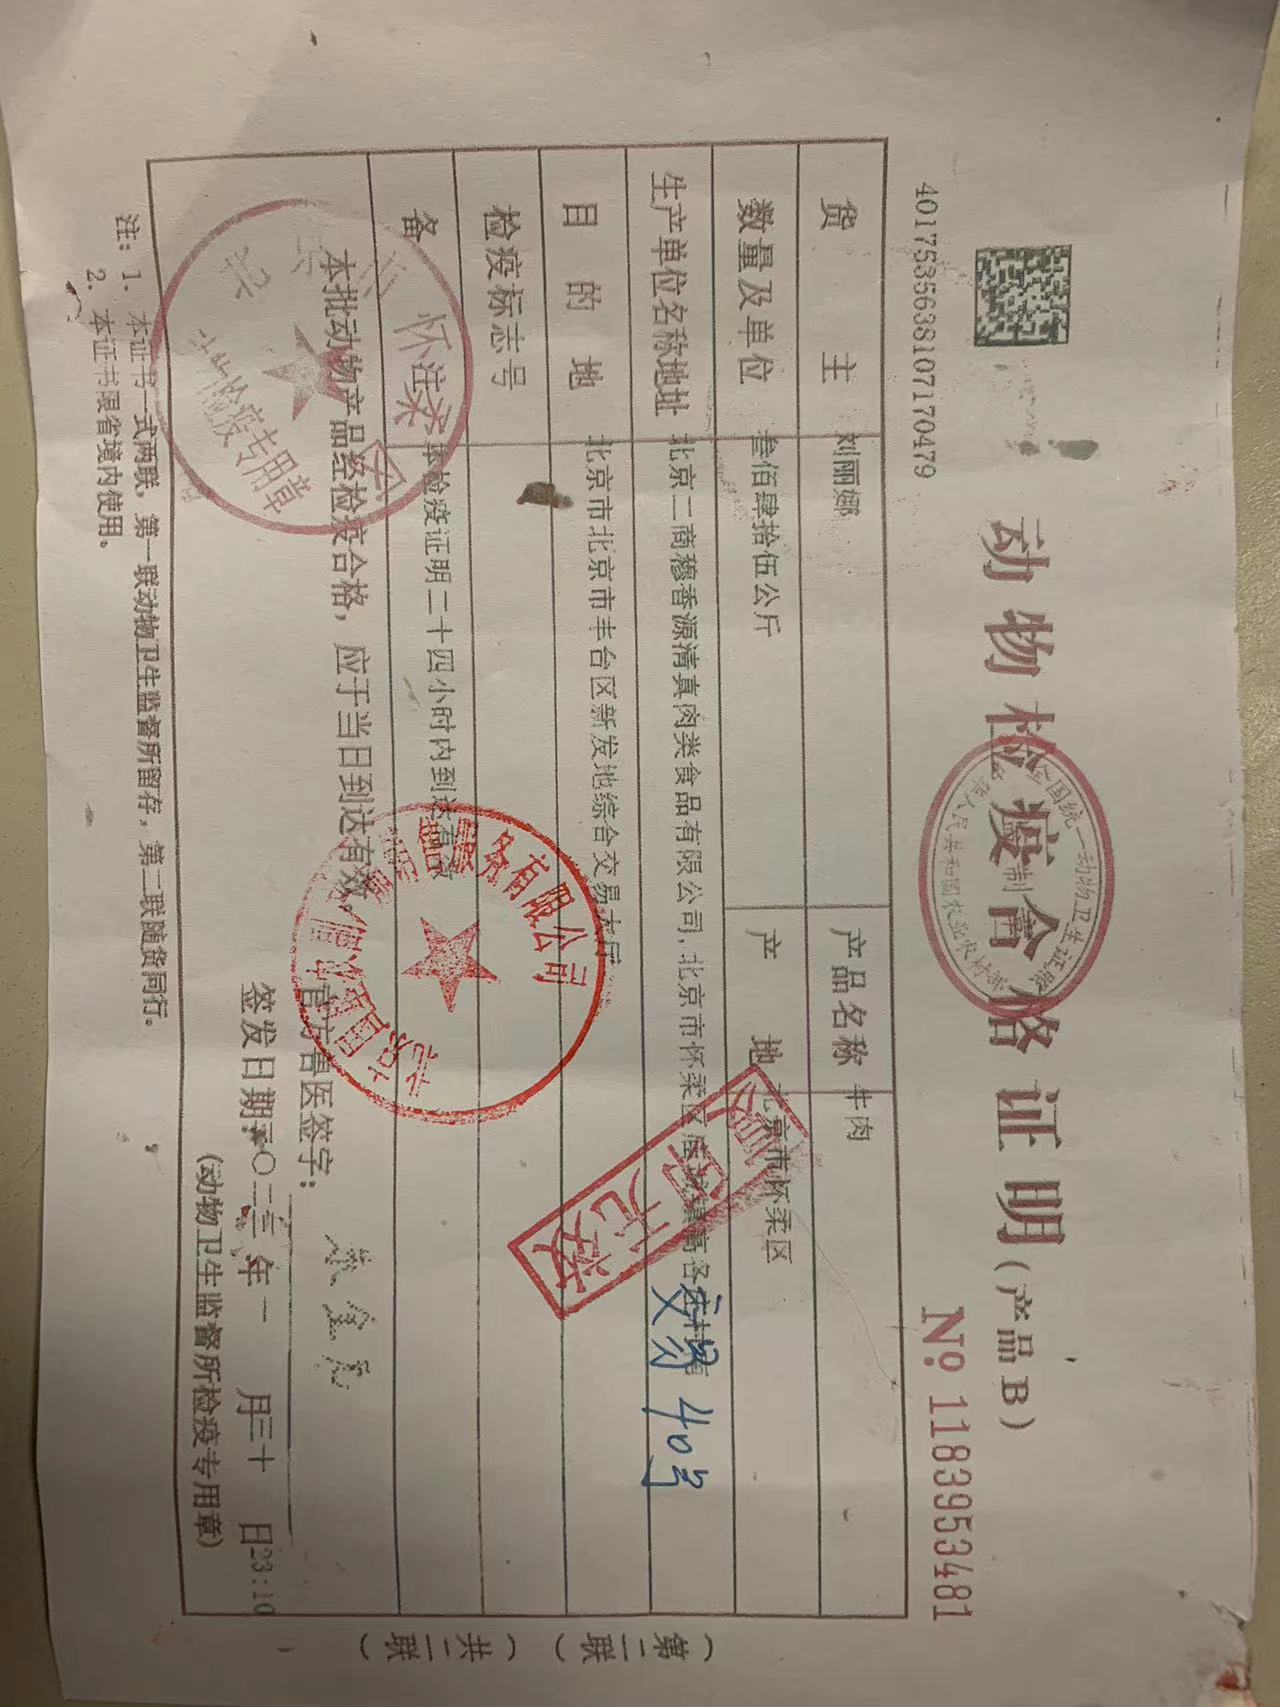 40175356381071​70479
动物检疫合格证明(产品B)
全国统一动物卫生证
制
中华人民共和国农业农村部
№ 11839953481
货 主 刘丽娜 产品名称 牛肉
数量及单位 叁佰肆拾伍公斤 产 地 北京市怀柔区
生产单位名称地址 北京二商穆香源清真肉类食品有限公司,北京市怀柔区庙城镇高各庄村
交易40号
目 的 地 北京市北京市丰台区新发地综合交易大厅
检疫标志号
备 注 本检疫证明二十四小时内到达有效
本批动物产品经检疫合格,应于当日到达有效。
官方兽医签字:
签发日期:二〇二三年一月三十日23:10
(动物卫生监督所检疫专用章)
注:1. 本证书一式两联,第一联动物卫生监督所留存,第二联随货同行。
2. 本证书限省境内使用。
(第二联)
(共二联)
北京
怀柔
检疫专用章
服务有限公司
复印无效